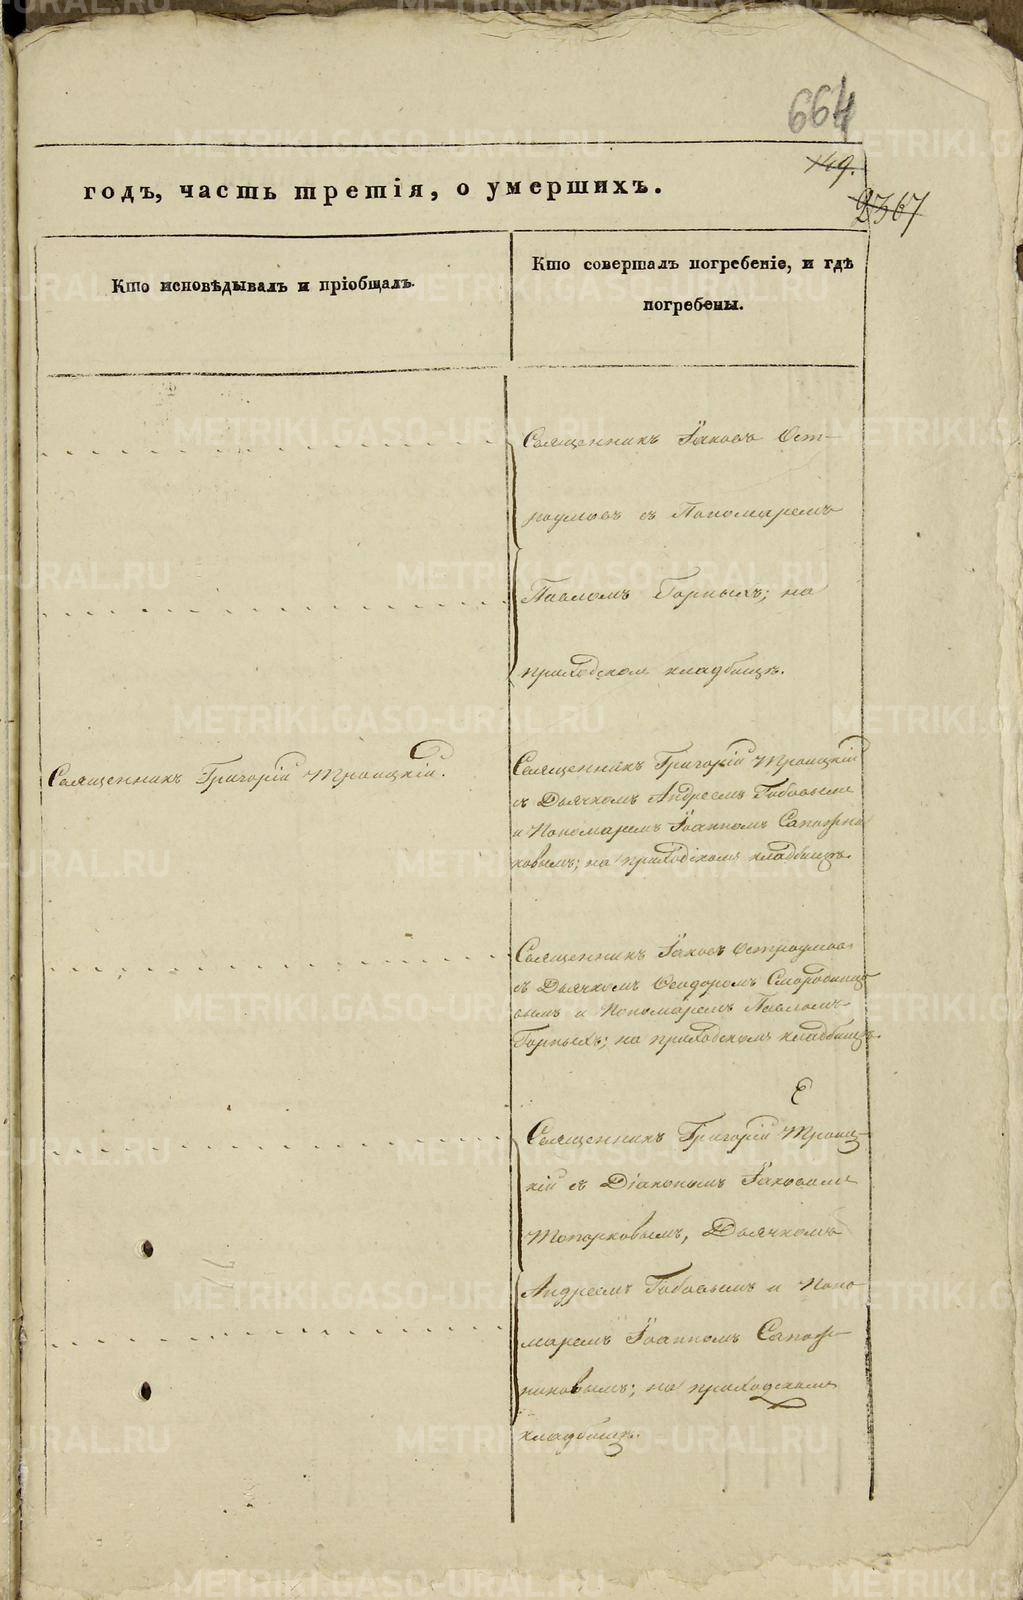 664
149.
2367
годъ, часть третія, о умершихъ.
Кто исповѣдывалъ и пріобщалъ.
Кто совершалъ погребеніе, и гдѣ
погребены.
Священникъ Іаковъ Ост-
роумовъ съ Пономаремъ
Павломъ Горныхъ; на
приходскомъ кладбищѣ.
Священникъ Григорій Троицкій.
Священникъ Григорій Троицкій
съ Дьячкомъ Андреемъ
и Пономаремъ Іоанномъ Сапожни
ковымъ; на приходскомъ кладбищѣ.
Священникъ Іаковъ Остроумовъ
съ Дьячкомъ Ѳеодоромъ Смородинце
вымъ и Пономаремъ Павломъ
Горныхъ; на приходскомъ кладбищѣ.
Священникъ Григорій Троиц-
кій съ Діакономъ Іаковомъ
Топорковымъ, Дьячкомъ
Андреемъ и Поно
маремъ Іоанномъ Сапож-
никовымъ; на приходскомъ
кладбищѣ.
METRIKI.GASO-URAL.RU